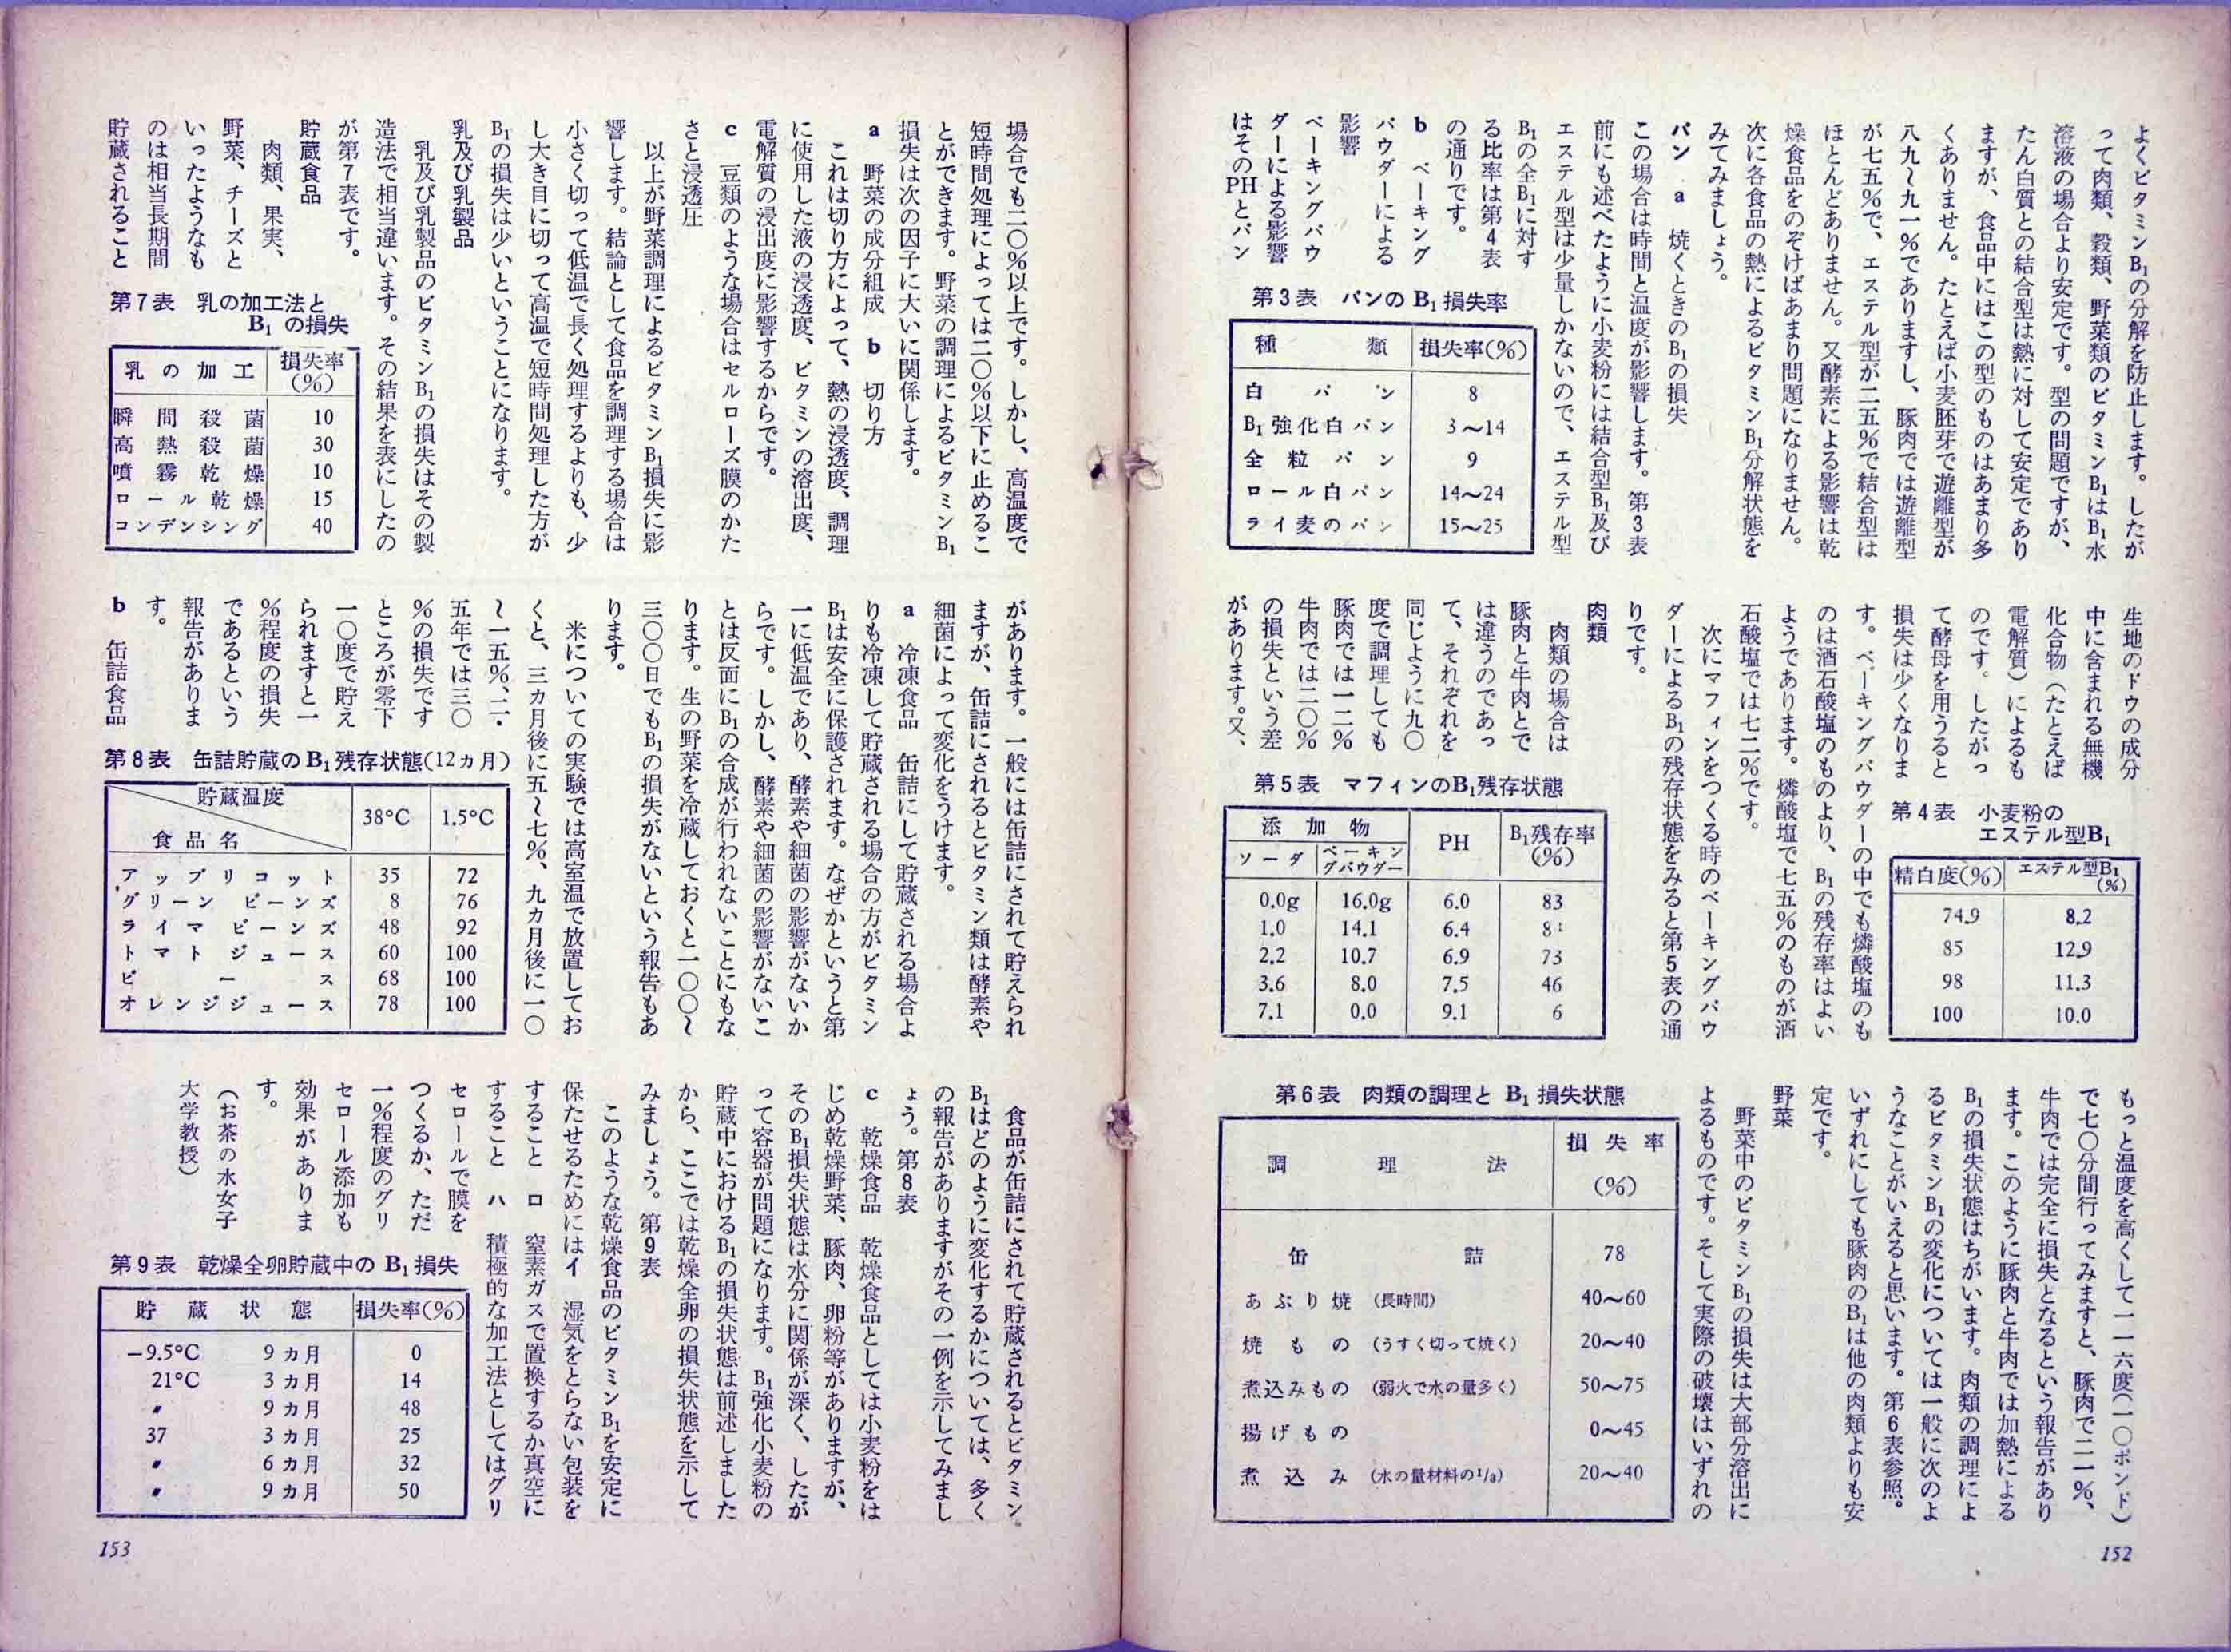 よくビタミンB₁の分解を防止します。したが
って肉類、穀類、野菜類のビタミンB₁はB₁水
溶液の場合より安定です。型の問題ですが、
たん白質との結合型は熱に対して安定であり
ますが、食品中にはこの型のものはあまり多
くありません。たとえば小麦胚芽で遊離型が
八九〜九一%でありますし、豚肉では遊離型
が七五%で、エステル型が二五%で結合型は
ほとんどありません。又酵素による影響は乾
燥食品をのぞけばあまり問題になりません。
次に各食品の熱によるビタミンB₁分解状態を
みてみましょう。
パン a 焼くときのB₁の損失
この場合は時間と温度が影響します。第3表
前にも述べたように小麦粉には結合型B₁及び
エステル型は少量しかないので、エステル型
B₁の全B₁に対す
る比率は第4表
の通りです。
b ベーキング
パウダーによる
影響
ベーキングパウ
ダーによる影響
はそのPHとパン
第3表 パンのB₁損失率
種類 損失率(%)
白パン 8
B₁強化白パン 3〜14
全粒パン 9
ロール白パン 14〜24
ライ麦のパン 15〜25
生地のドウの成分
中に含まれる無機
化合物(たとえば
電解質)によるも
のです。したがっ
て酵母を用うると
損失は少くなりま
す。ベーキングパウダーの中でも燐酸塩のも
のは酒石酸塩のものより、B₁の残存率はよい
ようであります。燐酸塩で七五%のものが酒
石酸塩では七二%です。
次にマフィンをつくる時のベーキングパウ
ダーによるB₁の残存状態をみると第5表の通
りです。
肉類
肉類の場合は
豚肉と牛肉とで
は違うのであっ
て、それぞれを
同じように九〇
度で調理しても
豚肉では一二%
牛肉では二〇%
の損失という差
があります。又、
第4表 小麦粉の
エステル型B₁
精白度(%) エステル型B₁(%)
74.9 8.2
85 12.9
98 11.3
100 10.0
第5表 マフィンのB₁残存状態
添加物 PH B₁残存率(%)
ソーダ ベーキングパウダー
0.0g 16.0g 6.0 83
1.0 14.1 6.4
2.2 10.7 6.9 73
3.6 8.0 7.5 46
7.1 0.0 9.1 6
もっと温度を高くして一一六度(一〇ポンド)
で七〇分間行ってみますと、豚肉で二一%、
牛肉では完全に損失となるという報告があり
ます。このように豚肉と牛肉では加熱による
B₁の損失状態はちがいます。肉類の調理によ
るビタミンB₁の変化については一般に次のよ
うなことがいえると思います。第6表参照。
いずれにしても豚肉のB₁は他の肉類よりも安
定です。
野菜
野菜中のビタミンB₁の損失は大部分溶出に
よるものです。そして実際の破壊はいずれの
第6表 肉類の調理とB₁損失状態
調理法 損失率(%)
缶詰 78
あぶり焼(長時間) 40〜60
焼もの(うすく切って焼く) 20〜40
煮込みもの(弱火で水の量多く) 50〜75
揚げもの 0〜45
煮込み(水の量材料の1/3) 20〜40
152
場合でも二〇%以上です。しかし、高温度で
短時間処理によっては二〇%以下に止めるこ
とができます。野菜の調理によるビタミンB₁
損失は次の因子に大いに関係します。
a 野菜の成分組成 b 切り方
これは切り方によって、熱の浸透度、調理
に使用した液の浸透度、ビタミンの溶出度、
電解質の浸出度に影響するからです。
c 豆類のような場合はセルローズ膜のかた
さと浸透圧
以上が野菜調理によるビタミンB₁損失に影
響します。結論として食品を調理する場合は
小さく切って低温で長く処理するよりも、少
し大き目に切って高温で短時間処理した方が
B₁の損失は少いということになります。
乳及び乳製品
乳及び乳製品のビタミンB₁の損失はその製
造法で相当違います。その結果を表にしたの
が第7表です。
貯蔵食品
肉類、果実、
野菜、チーズと
いったようなも
のは相当長期間
貯蔵されること
第7表 乳の加工法と
B₁の損失
乳の加工 損失率(%)
瞬間殺菌 10
高熱殺菌 30
噴霧乾燥 10
ロール乾燥 15
コンデンシング 40
があります。一般には缶詰にされて貯えられ
ますが、缶詰にされるとビタミン類は酵素や
細菌によって変化をうけます。
a 冷凍食品 缶詰にして貯蔵される場合よ
りも冷凍して貯蔵される場合の方がビタミン
B₁は安全に保護されます。なぜかというと第
一に低温であり、酵素や細菌の影響がないか
らです。しかし、酵素や細菌の影響がないこ
とは反面にB₁の合成が行われないことにもな
ります。生の野菜を冷蔵しておくと一〇〇〜
三〇〇日でもB₁の損失がないという報告もあ
ります。
米についての実験では高室温で放置してお
くと、三カ月後に五〜七%、九カ月後に一〇
〜一五%、二・
五年では三〇
%の損失です
ところが零下
一〇度で貯え
られますと一
%程度の損失
であるという
報告がありま
す。
b 缶詰食品
第8表 缶詰貯蔵のB₁残存状態(12ヵ月)
貯蔵温度 食品名 38°C 1.5°C
アップリコット 35 72
グリーンビーンズ 8 76
ライマビーンズ 48 92
トマトジュース 60 100
ピース 68 100
オレンジジュース 78 100
食品が缶詰にされて貯蔵されるとビタミン
B₁はどのように変化するかについては、多く
の報告がありますがその一例を示してみまし
ょう。第8表
c 乾燥食品 乾燥食品としては小麦粉をは
じめ乾燥野菜、豚肉、卵粉等がありますが、
そのB₁損失状態は水分に関係が深く、したが
って容器が問題になります。B₁強化小麦粉の
貯蔵中におけるB₁の損失状態は前述しました
から、ここでは乾燥全卵の損失状態を示して
みましょう。第9表
このような乾燥食品のビタミンB₁を安定に
保たせるためにはイ 湿気をとらない包装を
すること ロ 窒素ガスで置換するか真空に
すること ハ 積極的な加工法としてはグリ
セロールで膜を
つくるか、ただ
一%程度のグリ
セロール添加も
効果がありま
す。
(お茶の水女子
大学教授)
第9表 乾燥全卵貯蔵中のB₁損失
貯蔵状態 損失率(%)
−9.5°C 9ヵ月 0
21°C 3ヵ月 14
〃 9ヵ月 48
37 3ヵ月 25
〃 6ヵ月 32
〃 9ヵ月 50
153